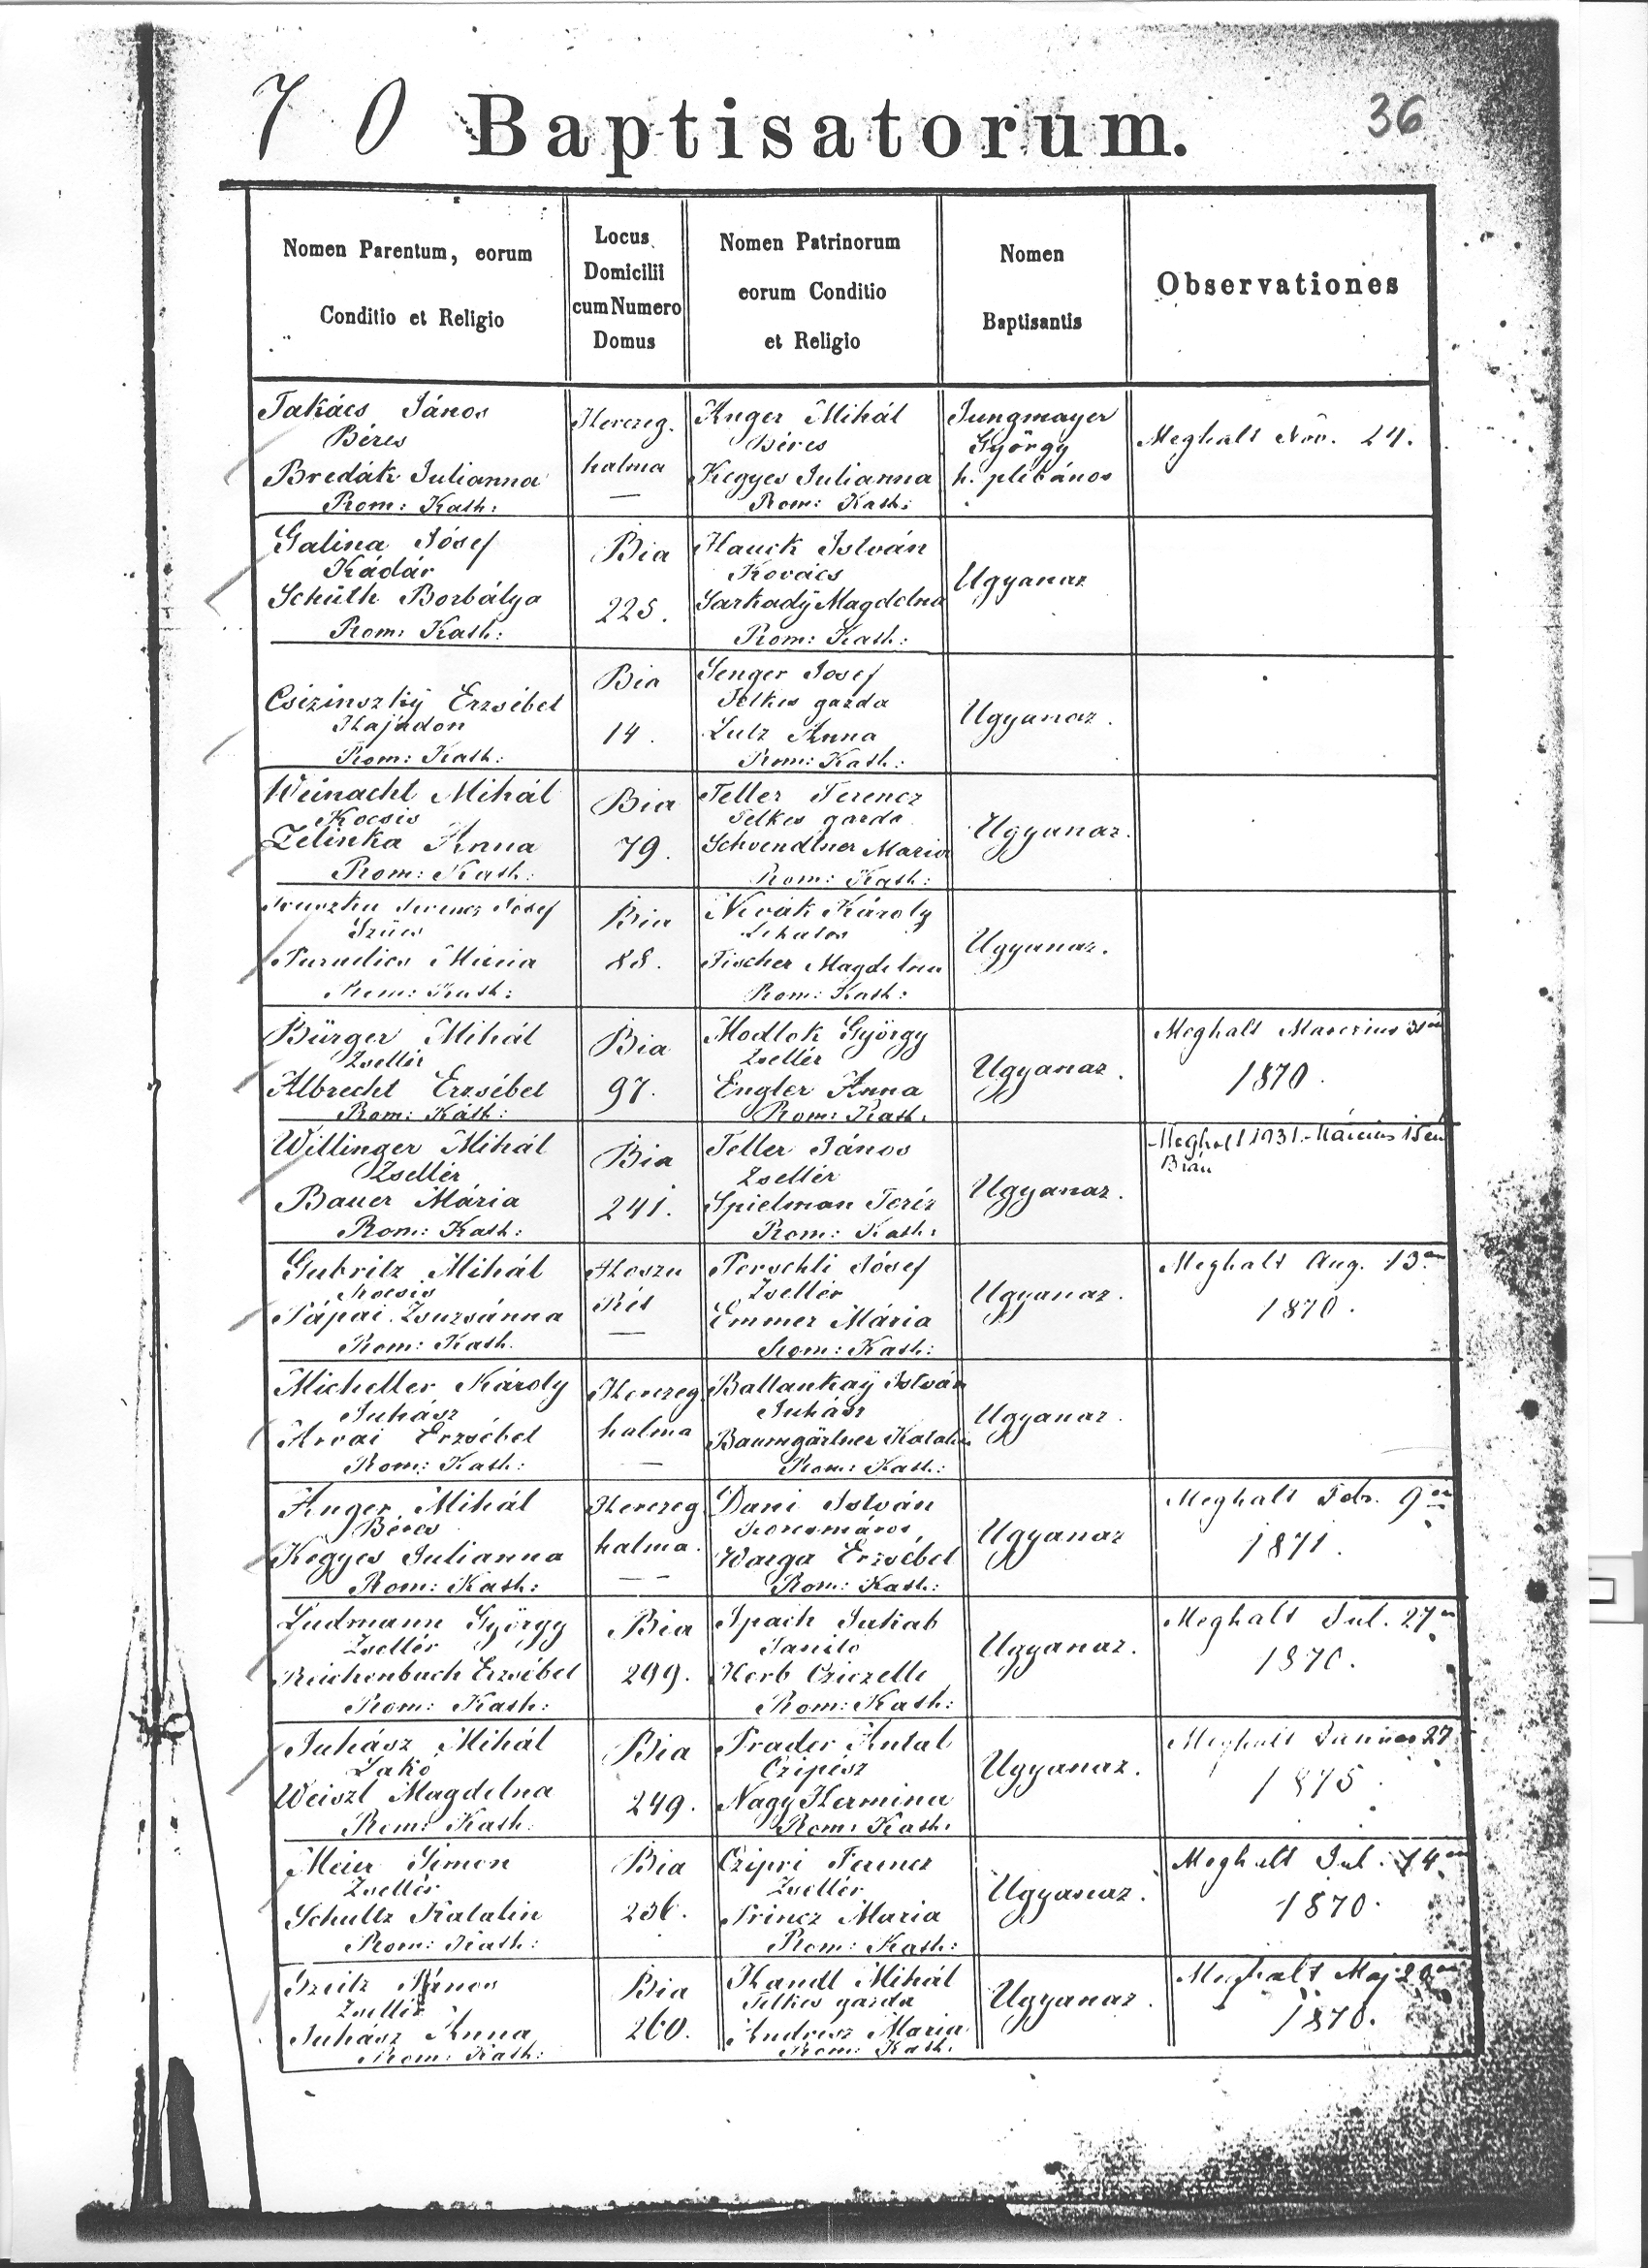 7 0 Baptisatorum. 36
Nomen Parentum, eorum
Conditio et Religio
Locus
Domicilii
cum Numero
Domus
Nomen Patrinorum
eorum Conditio
et Religio
Nomen
Baptisantis
Observationes
Takács János
Béres
Bredák Julianna
Rom: Kath:
Herczeg.
halma
—
Anger Mihál
Béres
Kegyes Julianna
Rom: Kath:
Jungmayer
György
h. plébános
Meghalt Nov. 24.
Galina Jósef
Kádár
Schüth Borbálya
Rom: Kath:
Bia
225.
Hauck István
Kovács
Sarkadÿ Magdolna
Rom: Kath:
Ugyanaz
Csizinszkÿ Erzsébet
Hajadon
Rom: Kath:
Bia
14.
Senger Josef
Telkes gazda
Lutz Anna
Rom: Kath:
Ugyanaz.
Weinacht Mihál
Kocsis
Zelinka Anna
Rom: Kath:
Bia
79.
Feller Ferencz
Telkes gazda
Schvendtner Maria
Rom: Kath:
Ugyanaz.
Ferencz Jósef
Szücs
Rom: Kath:
Bia
88.
Novák Károly
Lakatos
Fischer Magdolna
Rom: Kath:
Ugyanaz.
Bürger Mihál
Zsellér
Albrecht Erzsébet
Rom: Kath:
Bia
97.
Modlok György
Zsellér
Engler Anna
Rom: Kath:
Ugyanaz.
Meghalt Marczius 31én
1870.
Willinger Mihál
Zsellér
Bauer Mária
Rom: Kath:
Bia
241.
Feller János
Zsellér
Spielman Teréz
Rom: Kath:
Ugyanaz.
Meghalt 1931. Március 15én
Bián
Gubritz Mihál
Kocsis
Pápai Zsuzsánna
Rom: Kath.
Hoszu
Rét
—
Perschli Jósef
Zsellér
Emmer Mária
Rom: Kath:
Ugyanaz.
Meghalt Aug. 13án
1870.
Micheller Károly
Juhász
Árvai Erzsébet
Rom: Kath:
Herczeg
halma
—
Ballankaÿ István
Juhász
Baumgärtner Katalin
Rom: Kath:
Ugyanaz.
Anger Mihál
Béres
Kegyes Julianna
Rom: Kath:
Herczeg
halma.
— —
Dani István
Korcsmáros,
Warga Erzsébet
Rom: Kath:
Ugyanaz
Meghalt Febr. 9én
1871.
Ludmann György
Zsellér
Reichenbach Erzsébet
Rom: Kath:
Bia
299.
Spach Jakab
Tanitó
Herb Cziczelle
Rom: Kath:
Ugyanaz.
Meghalt Jul. 27én
1870.
Juhász Mihál
Lakó
Weiszt Magdolna
Rom: Kath:
Bia
249.
Prader Antal
Czipész
Nagy Hermina
Rom: Kath:
Ugyanaz.
Meghalt 27
1875.
Meier Simon
Zsellér
Schultz Katalin
Rom: Kath:
Bia
236.
Czipri Ferencz
Zsellér
Princz Maria
Rom: Kath:
Ugyanaz.
Meghalt Jul. 14én
1870.
János
Zsellér
Juhász Anna
Rom: Kath:
Bia
260.
Handl Mihál
Telkes gazda
Andrész Maria
Rom: Kath:
Ugyanaz.
Meghalt Maj 20án
1870.